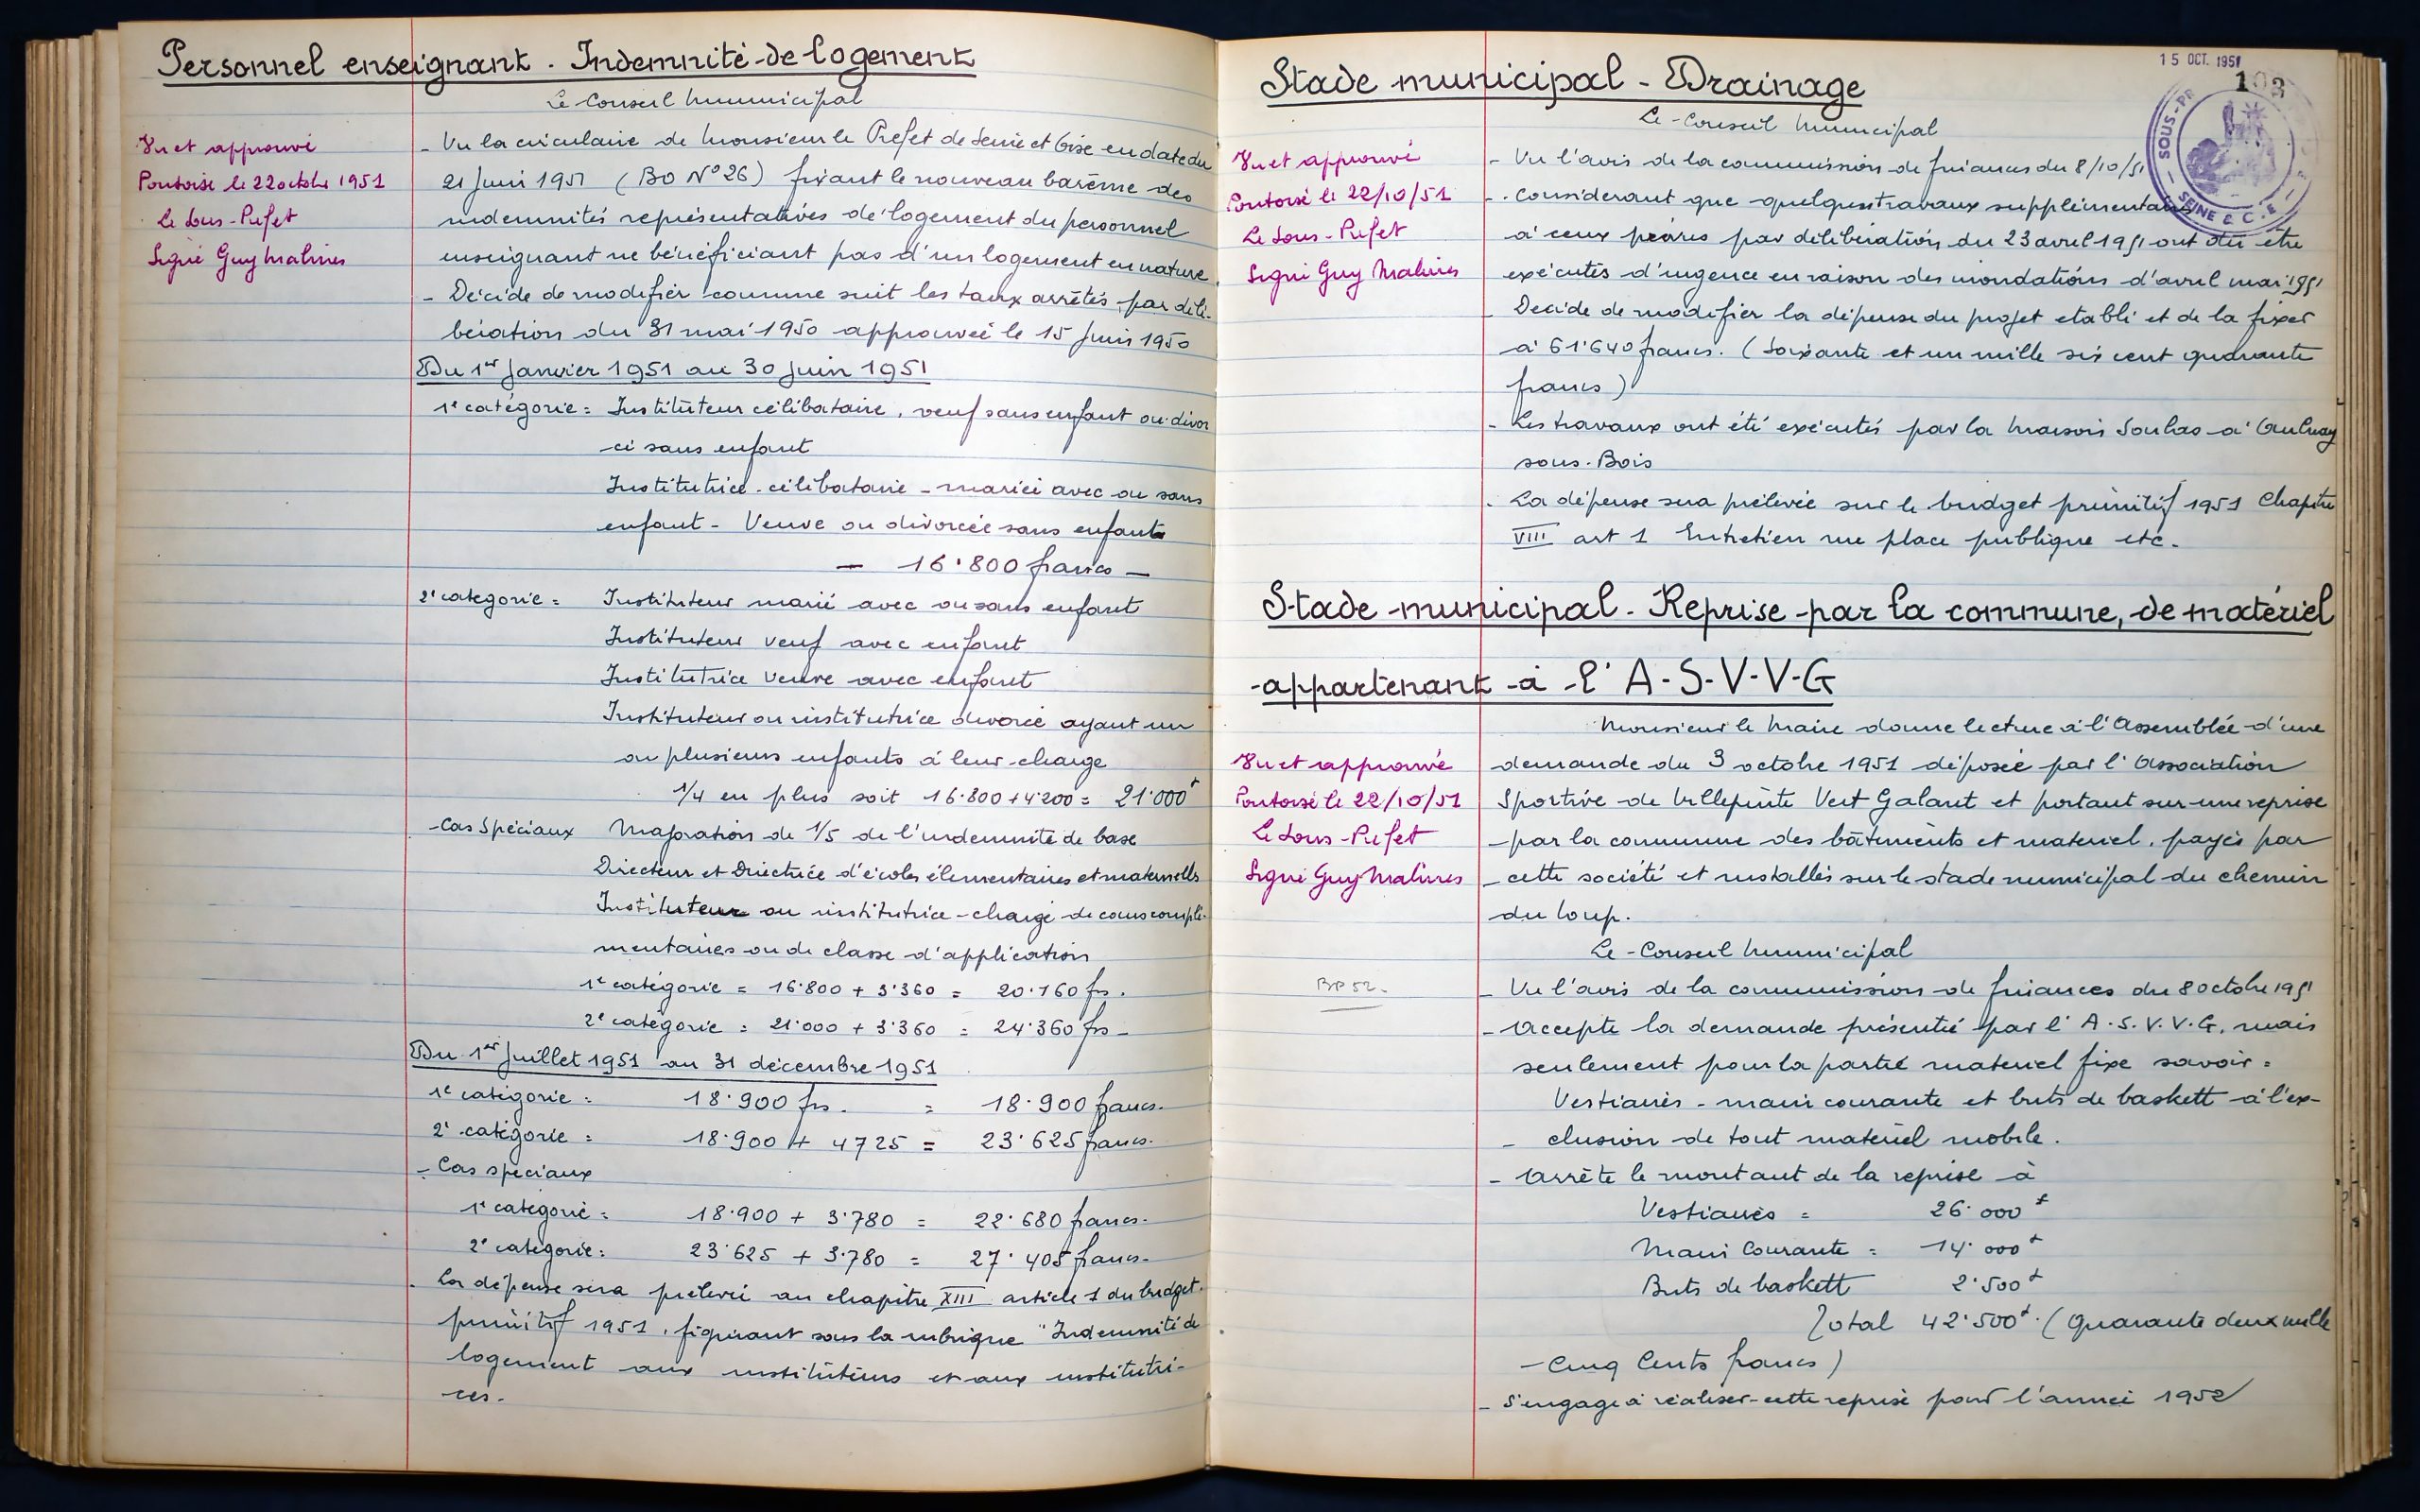 Personnel enseignant. Indemnité de logement
Le Conseil Municipal
Vu et approuvé
Pontoise le 22 octobre 1951
Le Sous-Préfet
Signé Guy Malines
- Vu la circulaire de Monsieur le Préfet de Seine et Oise en date du
21 Juin 1951 (BO N° 26) fixant le nouveau barème des
indemnités représentatives de logement du personnel
enseignant ne bénéficiant pas d'un logement en nature.
- Décide de modifier comme suit les taux arrêtés par déli-
bération du 31 mai 1950 approuvée le 15 Juin 1950
Du 1er Janvier 1951 au 30 Juin 1951
1e catégorie = Instituteur célibataire, veuf sans enfant ou divor
cé sans enfant
Institutrice célibataire - mariée avec ou sans
enfant - Veuve ou divorcée sans enfants
- 16.800 francs -
2e catégorie = Instituteur marié avec ou sans enfant
Instituteur veuf avec enfant
Institutrice veuve avec enfant
Instituteur ou institutrice divorcé ayant un
ou plusieurs enfants à leur charge
1/4 en plus soit 16.800 + 4.200 = 21.000 f
- Cas Spéciaux Majoration de 1/5 de l'indemnité de base
Directeur et Directrice d'écoles élémentaires et maternelles
Instituteur ou institutrice chargé de cours complé-
mentaires ou de classe d'application
1e catégorie = 16.800 + 3.360 = 20.160 frs.
2e catégorie = 21.000 + 3.360 = 24.360 frs -
Du 1er Juillet 1951 au 31 décembre 1951
1e catégorie = 18.900 frs. = 18.900 francs.
2e catégorie = 18.900 + 4725 = 23.625 francs.
- Cas spéciaux
1e catégorie = 18.900 + 3.780 = 22.680 francs.
2e catégorie = 23.625 + 3.780 = 27.405 francs.
- La dépense sera prélevée au chapitre XIII article 1 du budget
primitif 1951, figurant sous la rubrique "Indemnité de
logement aux instituteurs et aux institutri-
ces.
15 OCT. 1951
103
SOUS-PR
SEINE & O
Stade municipal - Drainage
Le Conseil Municipal
Vu et approuvé
Pontoise le 22/10/51
Le Sous-Préfet
Signé Guy Malines
- Vu l'avis de la commission de finances du 8/10/51
- Considerant que quelques travaux supplémentaires
à ceux prévus par délibération du 23 avril 1951 ont du être
exécutés d'urgence en raison des inondations d'avril mai 1951
Decide de modifier la dépense du projet etabli et de la fixer
à 61.640 francs. (Soixante et un mille six cent quarante
francs)
- Les travaux ont été exécutés par la Maison Soulas à Aulnay
sous-Bois
- La dépense sera prélevée sur le budget primitif 1951 Chapitre
VIII art 1 Entretien rue place publique etc.
Stade municipal. Reprise par la commune, de matériel
appartenant à l'A-S-V-V-G
Monsieur le Maire donne lecture à l'Assemblée d'une
Vu et approuvé
Pontoise le 22/10/51
Le Sous-Préfet
Signé Guy Malines
demande du 3 octobre 1951 déposée par l'Association
Sportive de Villepinte Vert Galant et portant sur une reprise
par la commune des bâtiments et materiel, payés par
cette société et installés sur le stade municipal du chemin
du loup.
Le Conseil Municipal
BP 52.
- Vu l'avis de la commission de finances du 8 octobre 1951
- Accepte la demande présentée par l'A.S.V.V.G. mais
seulement pour la partie materiel fixe savoir =
Vestiaires - main courante et buts de baskett à l'ex-
clusion de tout matériel mobile.
- Arrête le montant de la reprise à
Vestiaires = 26.000 f
Main Courante = 14.000 f
Buts de baskett 2.500 f
Total 42.500 f. (Quarante deux mille
Cinq Cents francs)
- S'engage à réaliser cette reprise pour l'année 1952